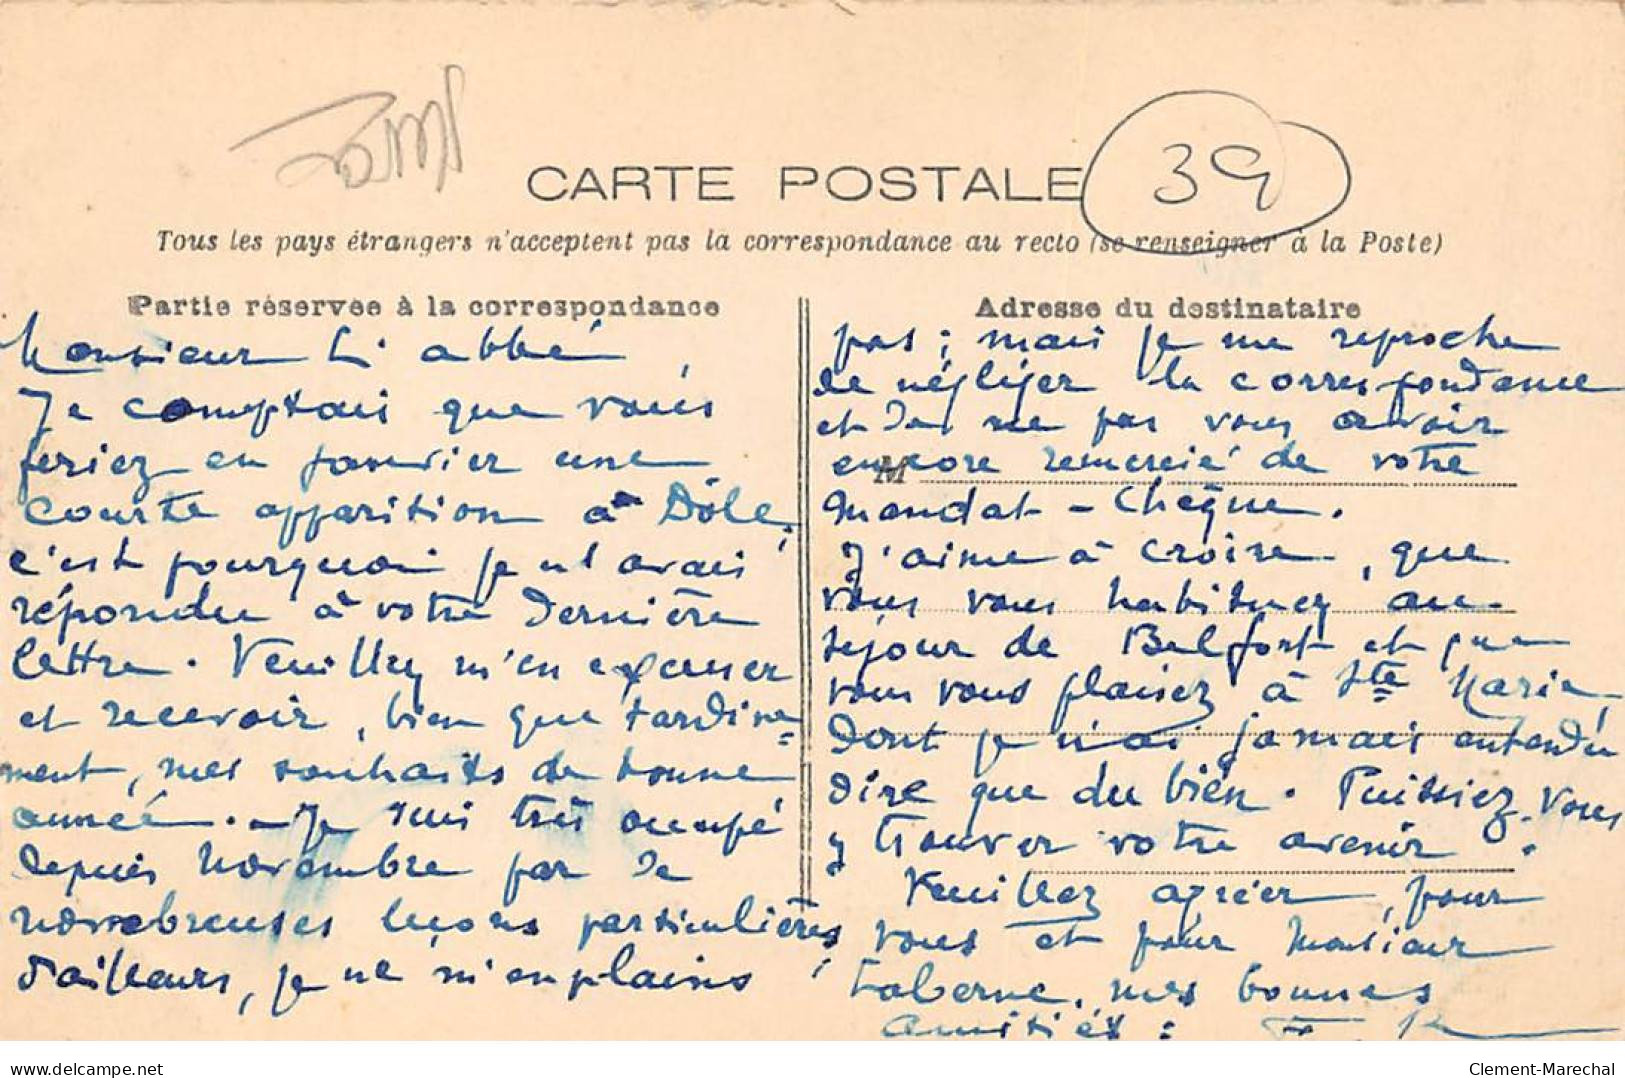 39
CARTE POSTALE
Tous les pays étrangers n'acceptent pas la correspondance au recto (se renseigner à la Poste)
Partie réservée à la correspondance
Monsieur L'abbé,
Je comptais que vous
feriez en janvier une
courte apparition à Dôle;
c'est pourquoi je n'avais
répondu à votre dernière
lettre. Veuillez m'en excuser
et recevoir, bien que tardive=
ment, mes souhaits de bonne
année. - Je suis très occupé
depuis novembre par de
nombreuses leçons particulières;
d'ailleurs, je ne m'en plains
Adresse du destinataire
pas; mais je me reproche
de négliger la correspondance
et de ne pas vous avoir
encore remercié de votre
M
mandat-chèque.
J'aime à croire, que
vous vous habituez au
séjour de Belfort et que
vous vous plaisez à Ste Marie,
dont je n'ai jamais entendu
dire que du bien. Puissiez-vous
y trouver votre avenir.
Veuillez agréer, pour
vous et pour Monsieur
Taberne, mes bonnes
amitiés:
delcampe.net
Clement-Marechal